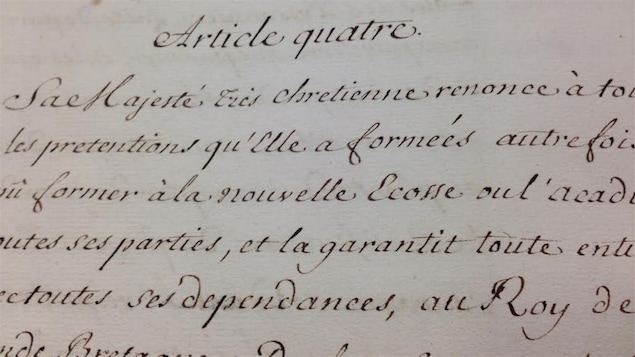 Article quatre.
Sa Majesté très chretienne renonce à tou
les pretentions qu'Elle a formées autrefois
pû former à la nouvelle Ecosse ou l'acadi
outes ses parties, et la garantit toute enti
ec toutes ses dependances, au Roy de
nde Bretagne. De plus